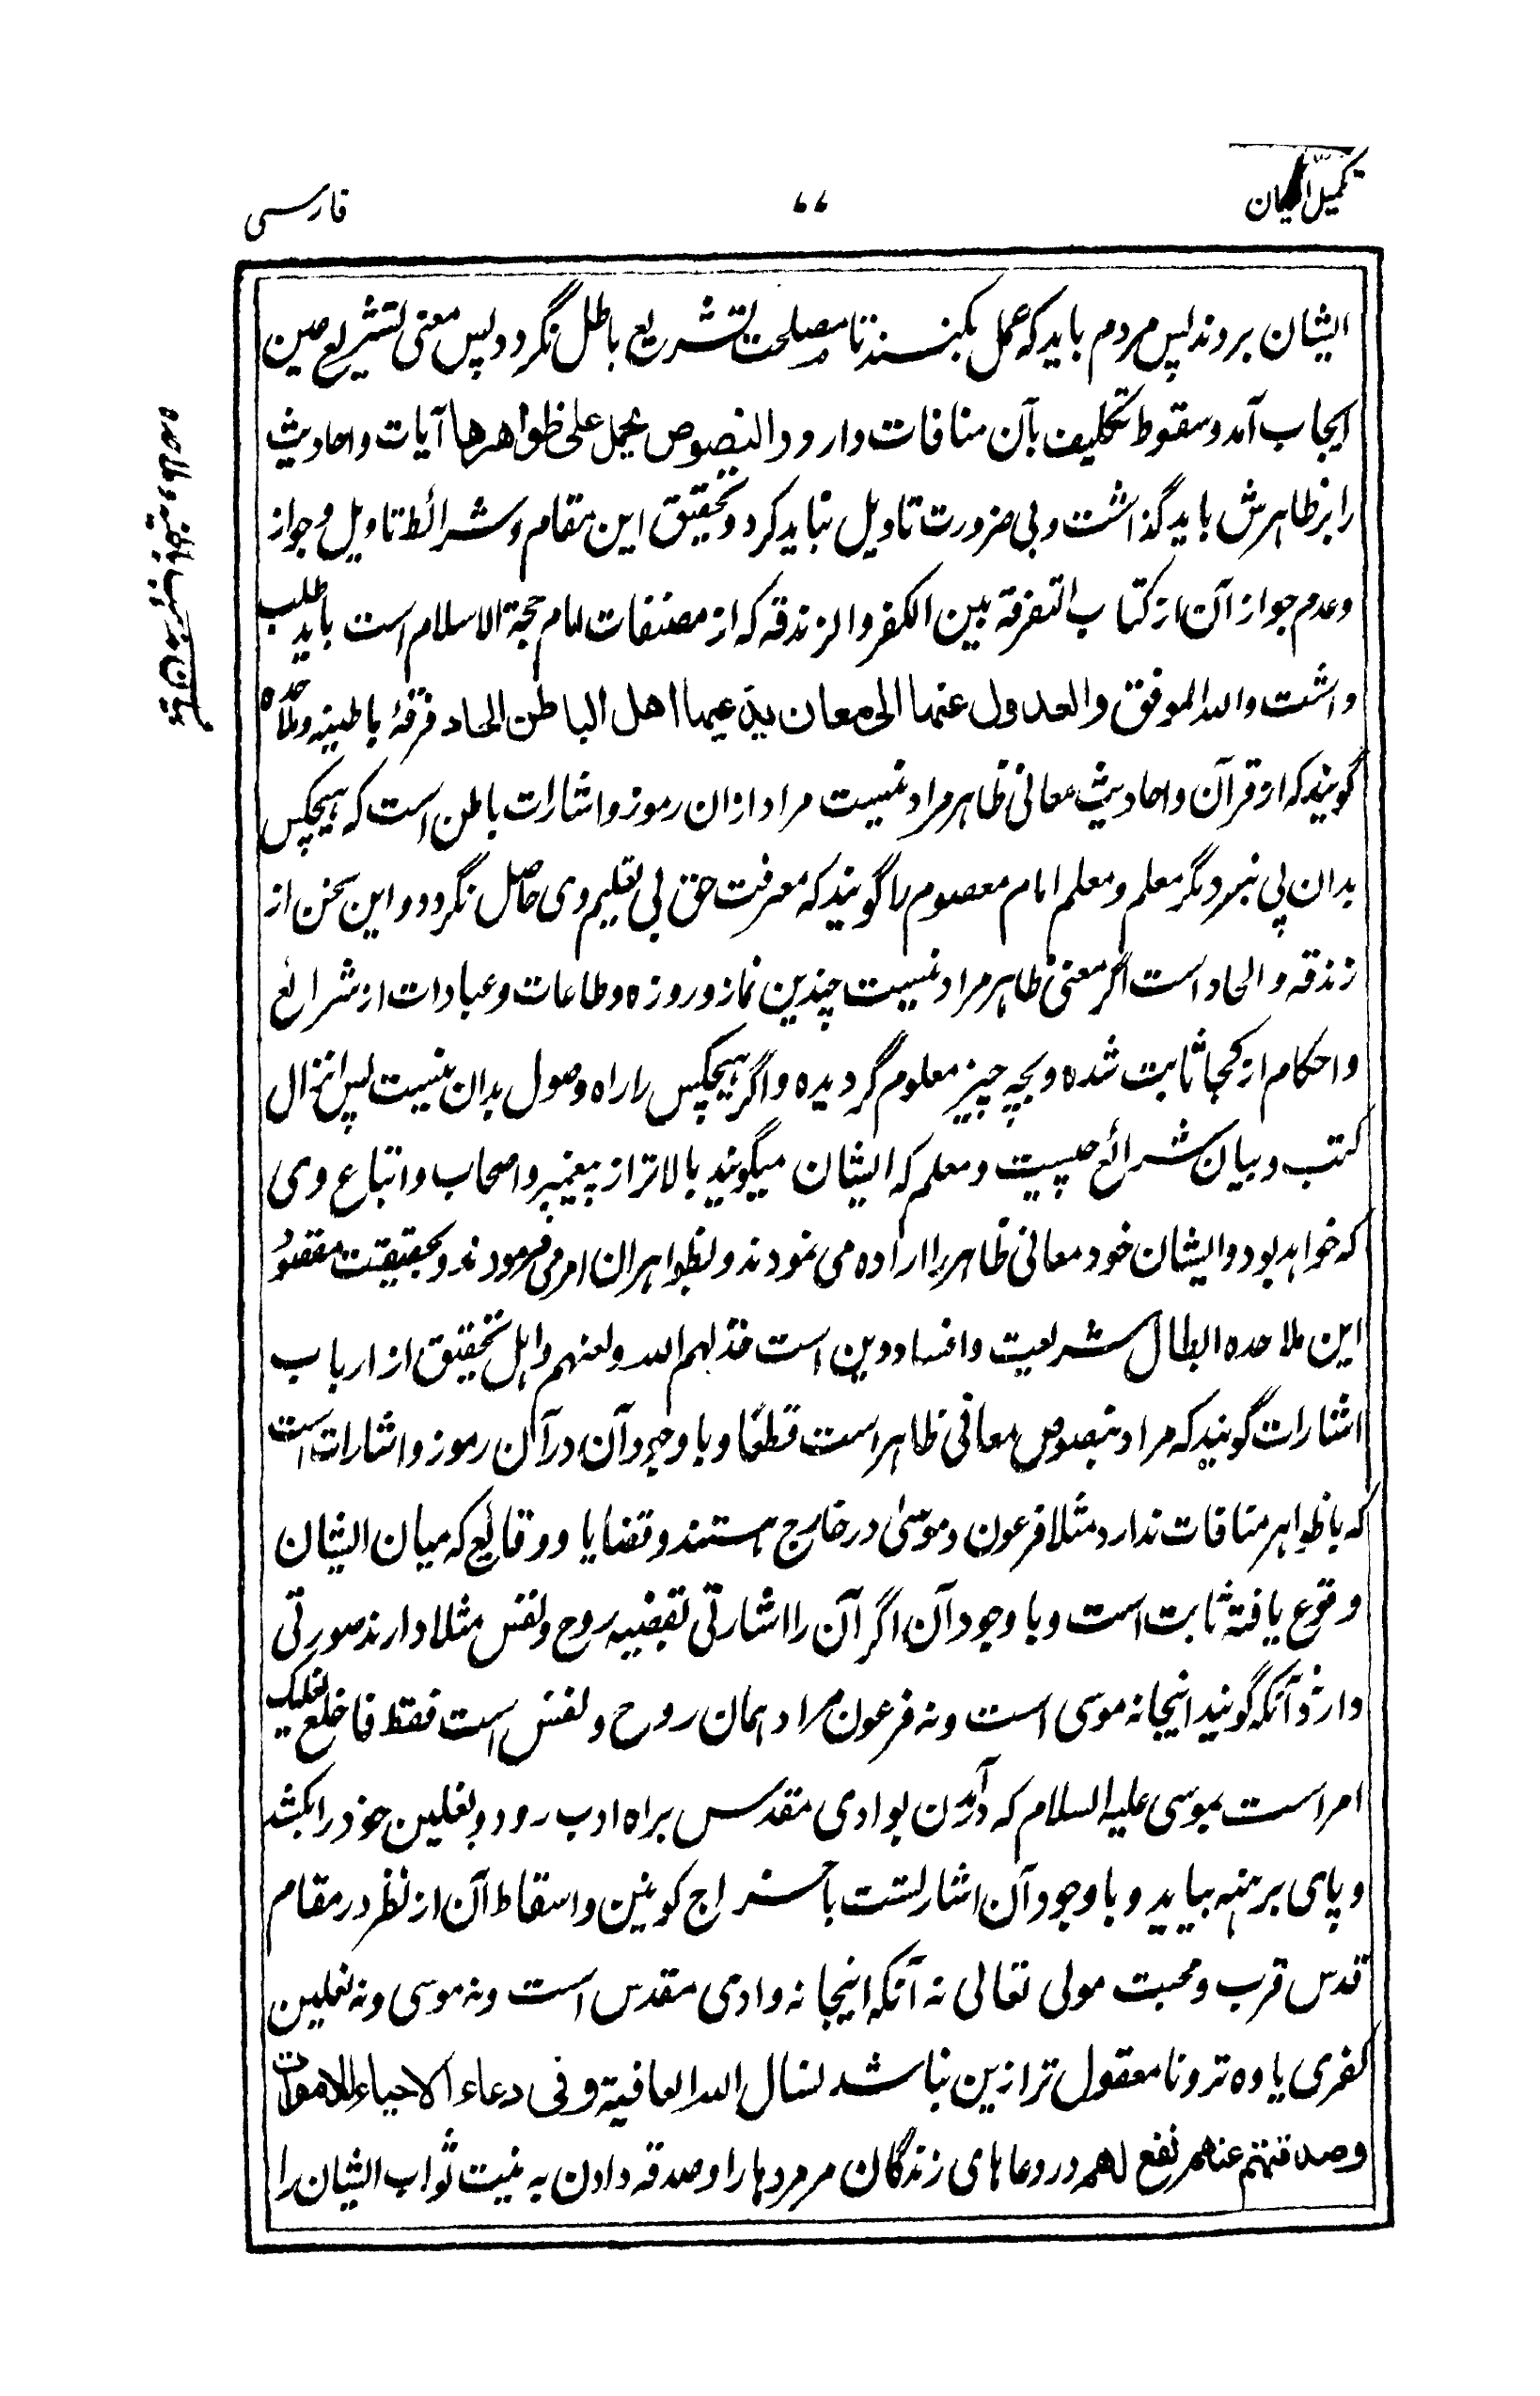 تکمیل الایمان
۷۷
فارسی
ایشان بروند پس مردم باید که عمل بکنند تا مصلحت تشریع باطل نگردد پس معنی تشریع عین
ایجاب آمد و سقوط تکلیف بآن منافات دارد و النصوص یحمل علی ظواهرها آیات و احادیث
را بر ظاهرش باید گذاشت و بی ضرورت تاویل نباید کرد و تحقیق این مقام و شرائط تاویل و جواز
و عدم جواز آن از کتاب التفرقة بین الکفر والزندقه که از مصنفات امام حجة الاسلام است باید طلب
داشت والله الموفق والعدول عنها الی معان یدعیها اهل الباطن الحاد فرقۀ باطنیه و ملاحده
گویند که از قرآن و احادیث معانی ظاهر مراد نیست مراد ازان رموز و اشارات باطن است که هیچکس
بدان پی نبرد مگر معلم و معلم امام معصوم را گویند که معرفت حق بی تعلیم وی حاصل نگردد و این سخن از
زندقه و الحاد است اگر معنی ظاهر مراد نیست چندین نماز و روزه و طاعات و عبادات از شرائع
و احکام از کجا ثابت شده و بچه چیز معلوم گردیده و اگر هیچکس را راه وصول بدان نیست پس انزال
کتب و بیان شرائع چیست و معلم که ایشان میگویند بالاتر از پیغمبر و اصحاب و اتباع وی
که خواهد بود و ایشان خود معانی ظاهر را اراده می نمودند و بظواهر ان امر می فرمودند و بحقیقت مقصود
این ملاحده ابطال شریعت و افساد دین است خذلهم الله ولعنهم و اهل تحقیق از ارباب
اشارات گویند که مراد نبصوص معانی ظاهر است قطعًا و با وجود آن در آن رموز و اشارات است
که با ظواهر منافات ندارد مثلا فرعون و موسیٰ در خارج هستند و قضایا و وقایع که میان ایشان
وقوع یافته ثابت است و با وجود آن اگر آن را اشارتی بقضیه روح و نفس مثلا دارند صورتی
دارد نه آنکه گویند اینجا نه موسی است و نه فرعون مراد همان روح و نفس است فقط فاخلع نعلیک
امر است بموسی علیه السلام که در آمدن بوادی مقدس براه ادب رود و نعلین خود را بکشد
و پای برهنه بیاید و با وجود آن اشارتست باخراج کونین و اسقاط آن از نظر در مقام
قدس قرب و محبت مولی تعالی نه آنکه اینجا نه وادی مقدس است و نه موسی و نه نعلین
کفری یاوه تر و نامعقول تر ازین نباشد نسال الله العافیة و فی دعاء الاحیاء للاموات
وصدقتهم عنهم نفع لهم در دعاهای زندگان مر مردها را و صدقه دادن به نیت ثواب ایشان را